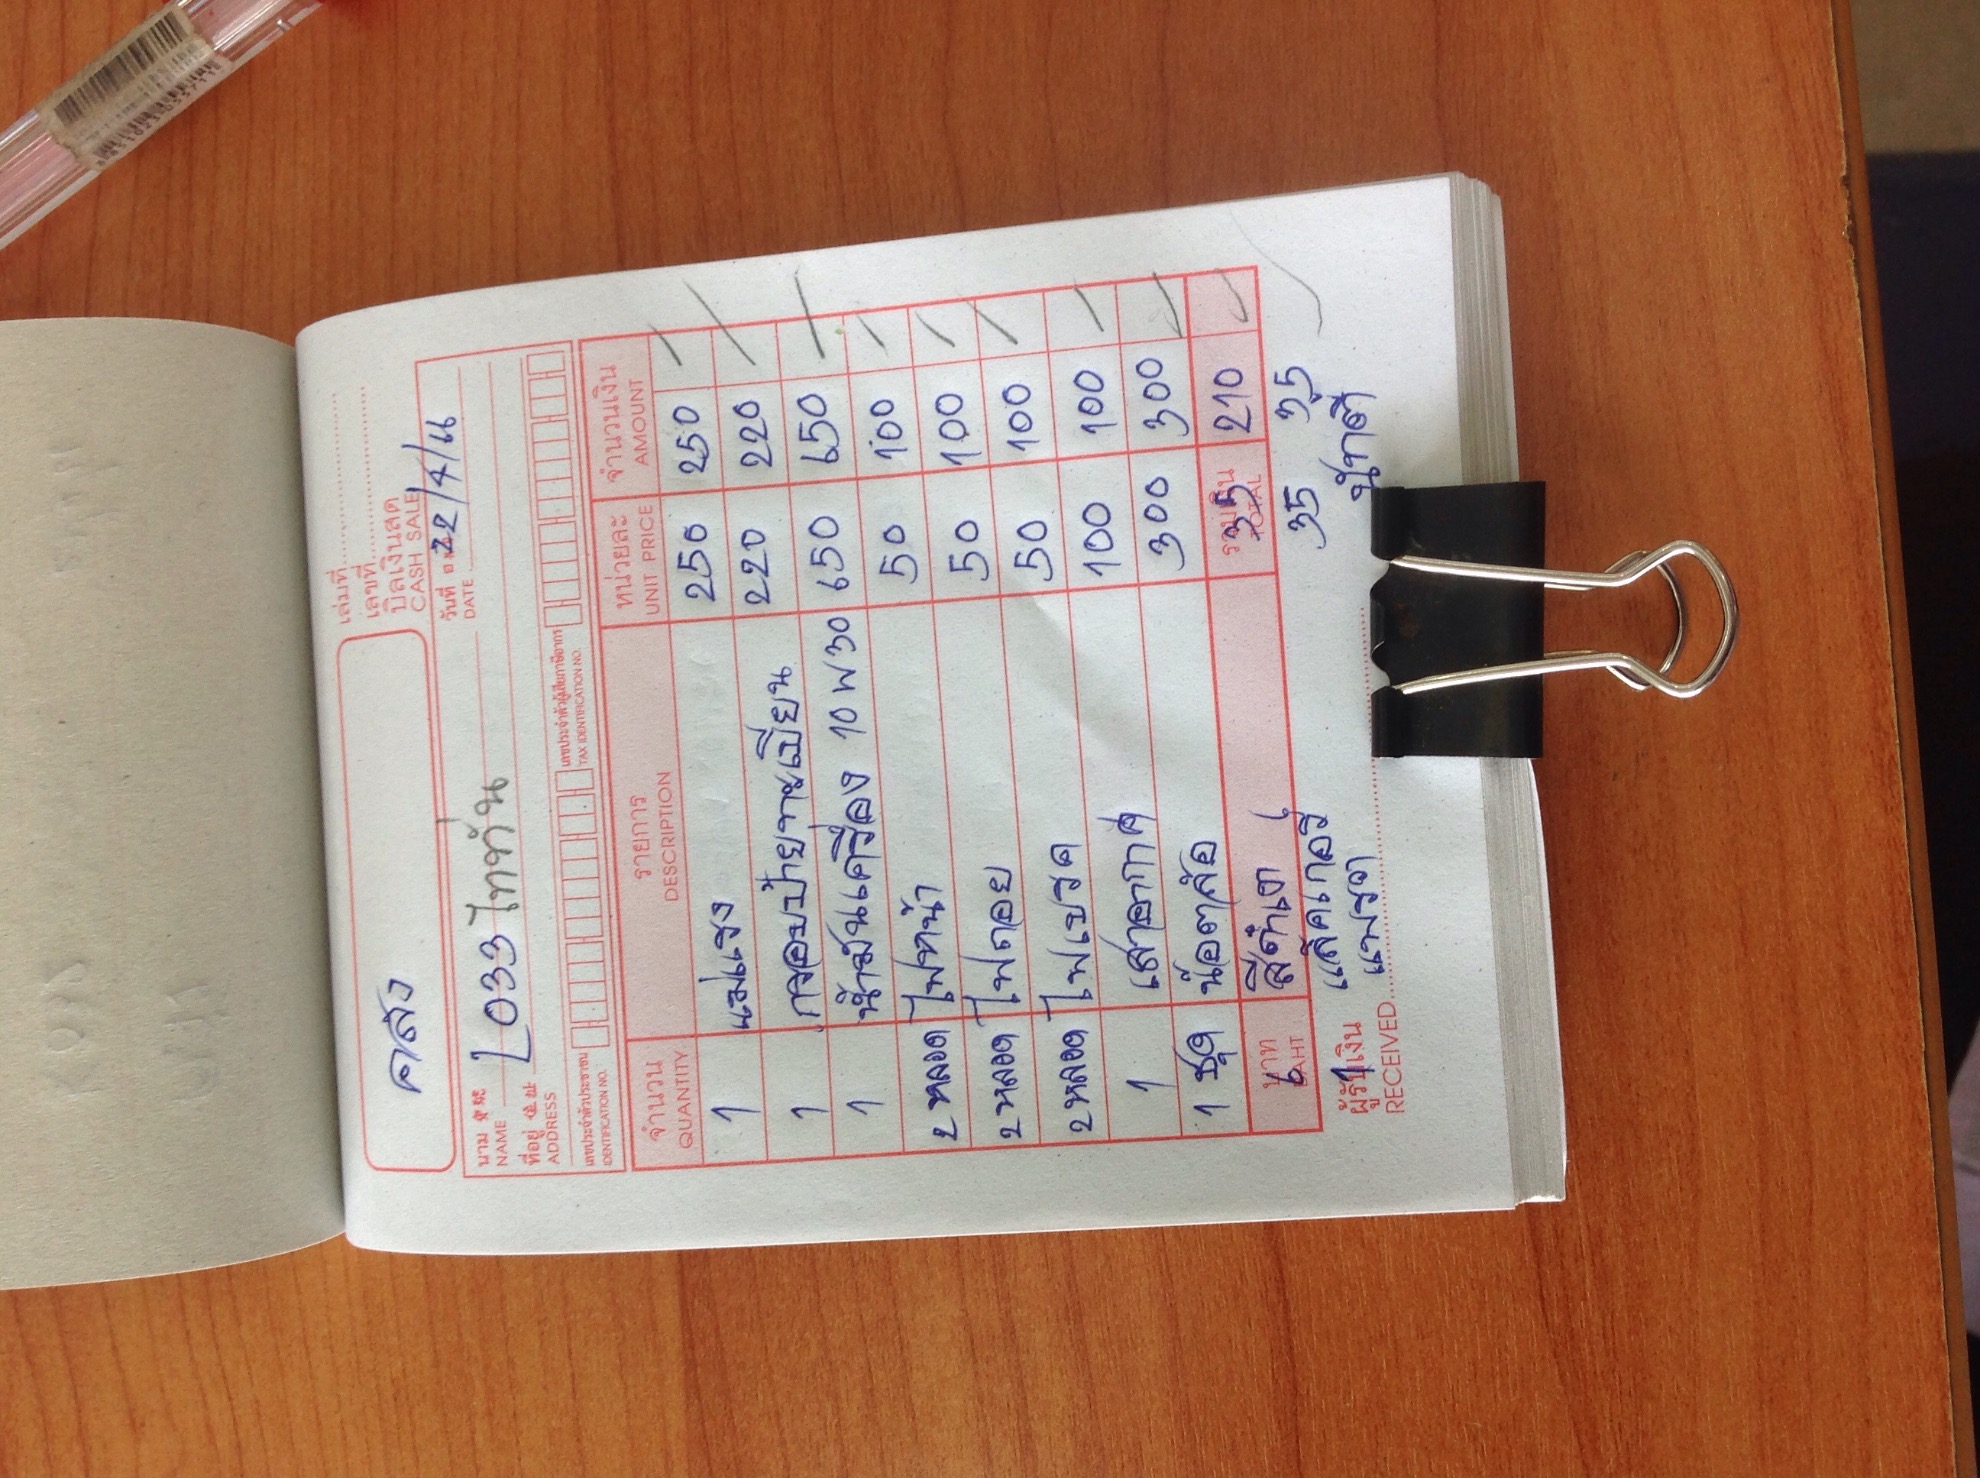 เล่มที่
เลขที่
บิลเงินสด
CASH SALE
คลัง
วันที่ 22/4/น
DATE
นาม L033 ไททั่น
NAME
ที่อยู่
ADDRESS
เลขประจำตัวประชาชน
IDENTIFICATION NO.
เลขประจำตัวผู้เสียภาษีอากร
TAX IDENTIFICATION NO.
จำนวน รายการ หน่วยละ จำนวนเงิน
QUANTITY DESCRIPTION UNIT PRICE AMOUNT
1 แม่แรง 250 250
1 กรอบป้ายทะเบียน 220 220
1 น้ำมันเครื่อง 10 W 30 650 650
2 หลอด ไฟหน้า 50 100
2 หลอด ไฟถอย 50 100
2 หลอด ไฟเบรค 50 100
1 เสาอากาศ 100 100
1 ชุด น๊อตล้อ 300 300
บาท รวมเงิน
BAHT TOTAL
6 สีดำเงา 35 210
1 แล็คเกอร์ 35 35
แพรตา
ผู้รับเงิน
RECEIVED